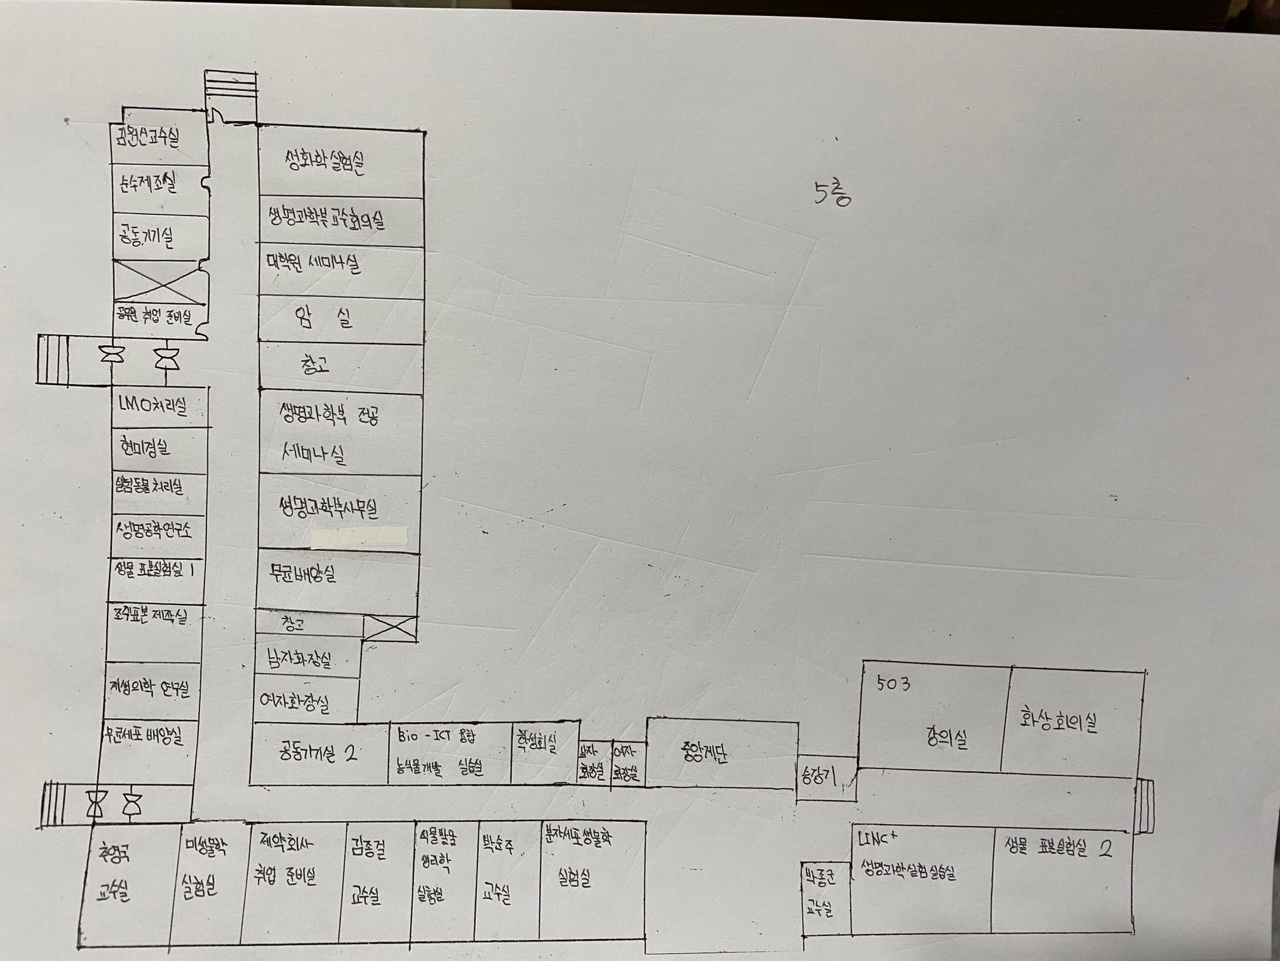 5층
김원신교수실
순수제조실
공동기기실
공무원 취업 준비실
LMO처리실
현미경실
실험동물처리실
생명공학연구소
생물 표본실험실 1
조직표본 제작실
재생의학 연구실
무균세포 배양실
생화학실험실
생명과학부교수회의실
대학원 세미나실
암 실
창고
생명과학부 전공
세미나실
생명과학부사무실
무균배양실
창고
남자화장실
여자화장실
공동기기실 2
Bio - ICT 융합
농식물개발 실습실
학생회실
남자
화장실
여자
화장실
중앙계단
승강기
503
강의실
화상회의실
추영국
교수실
미생물학
실험실
제약회사
취업 준비실
김종걸
교수실
식물발달
생리학
실험실
박순주
교수실
분자세포생물학
실험실
박종군
교수실
LINC+
생명과학실험실습실
생물 표본실험실 2